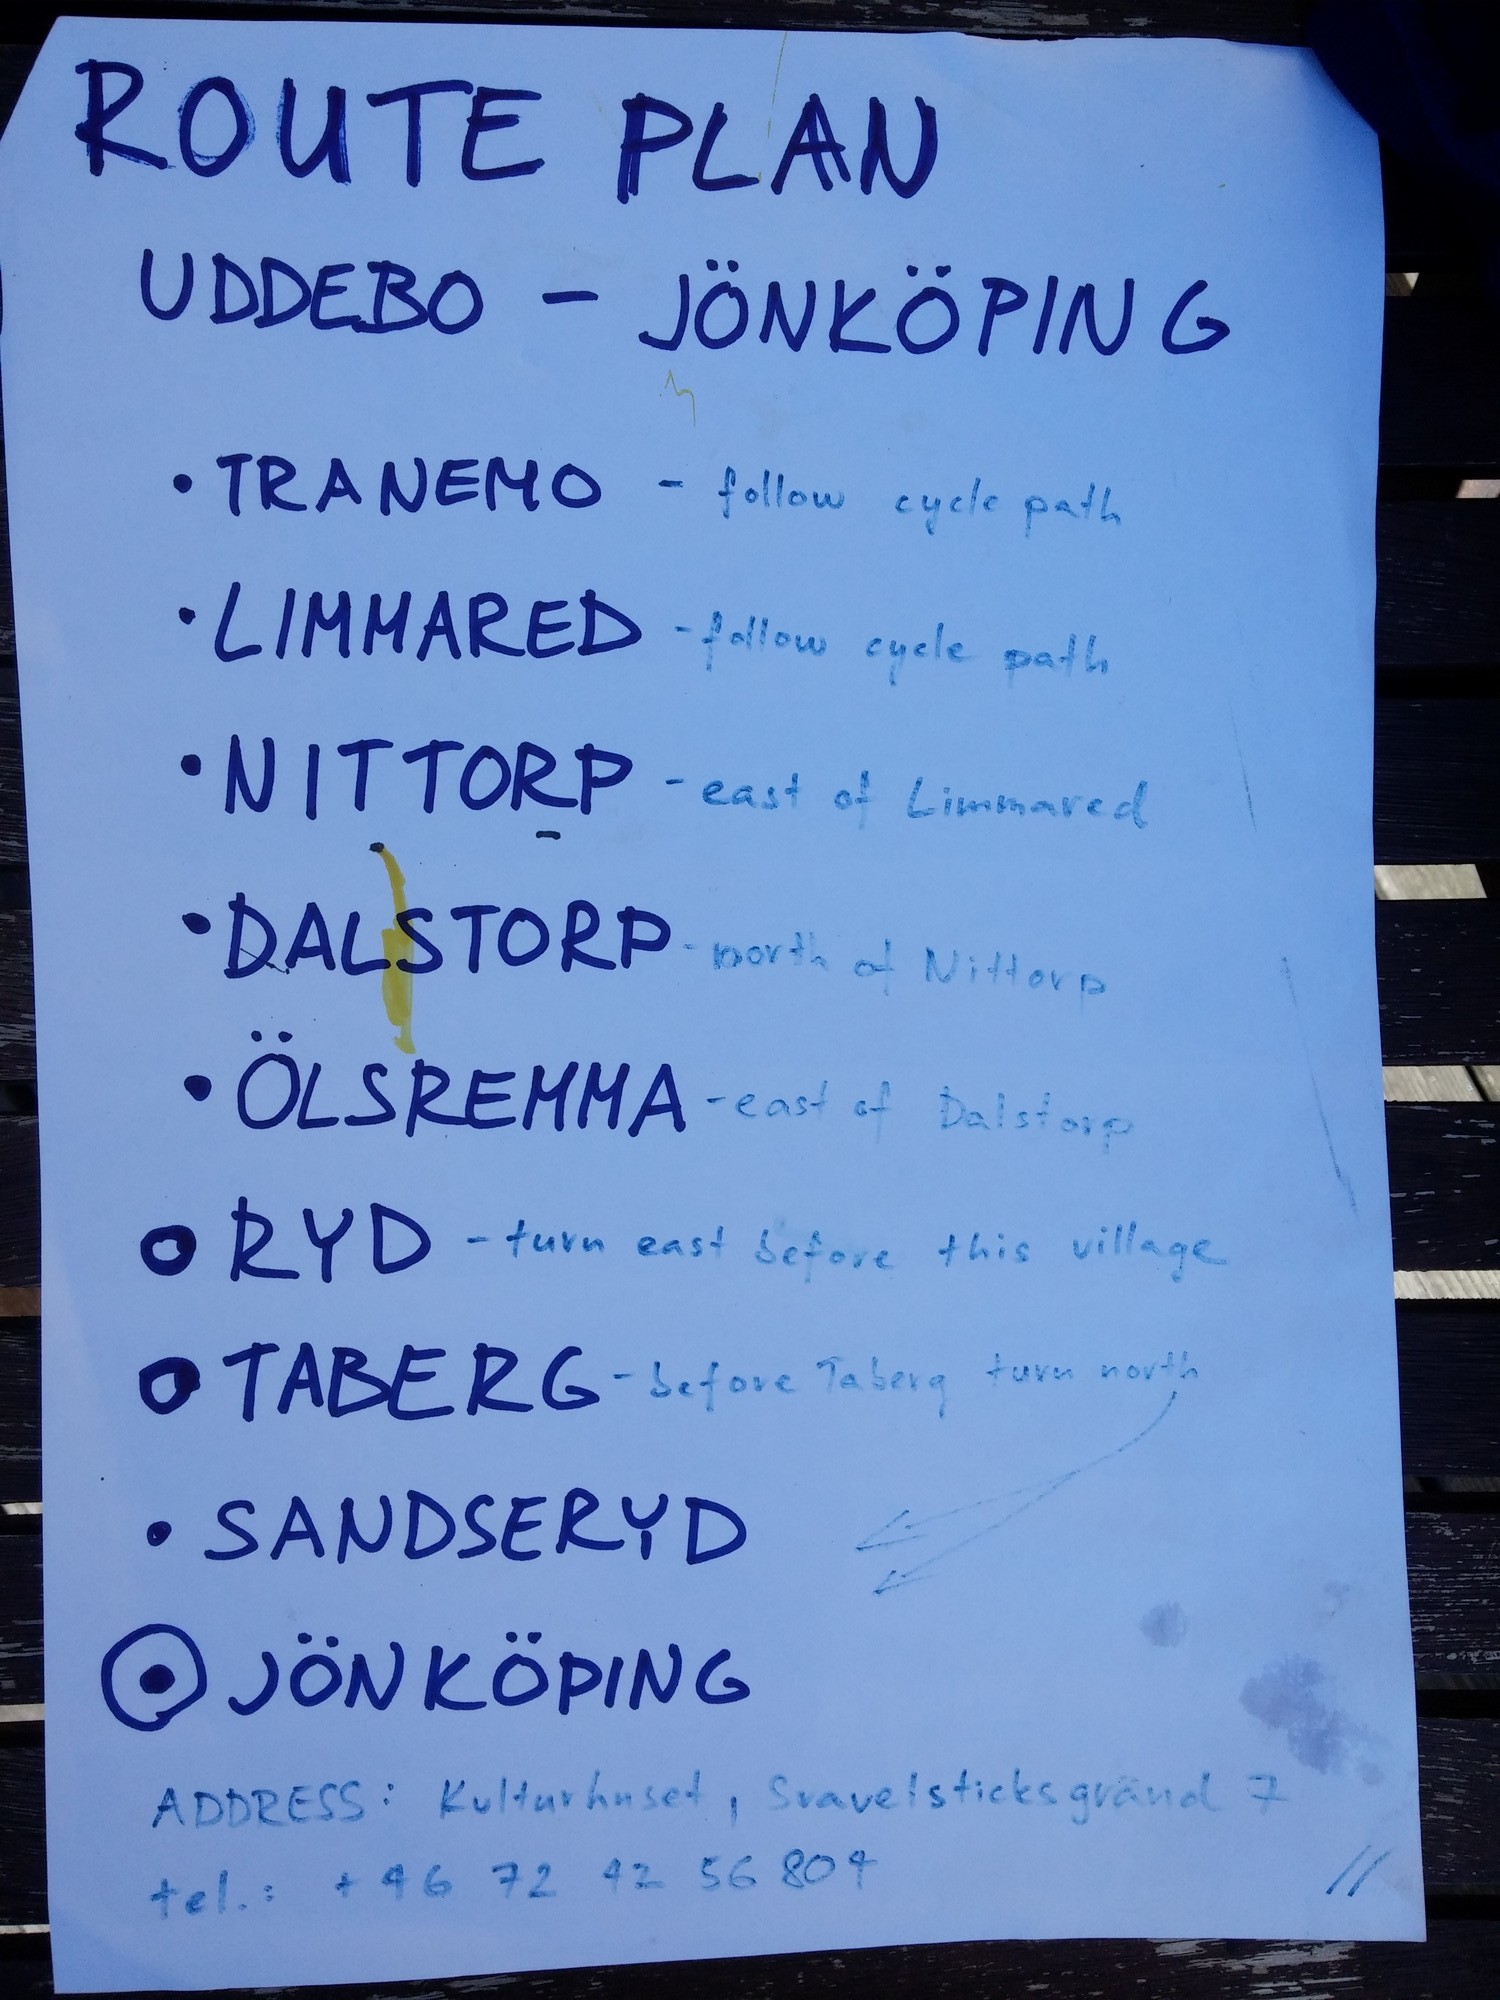 ROUTE PLAN
UDDEBO - JÖNKÖPING
• TRANEMO - follow cycle path
• LIMMARED - follow cycle path
• NITTORP - east of Limmared
• DALSTORP - north of Nittorp
• ÖLSREMMA - east of Dalstorp
• RYD - turn east before this village
• TABERG - before Taberg turn north
• SANDSERYD
• JÖNKÖPING
ADDRESS: Kulturhuset, Svavelsticksgränd 7
tel.: +46 72 42 56 804